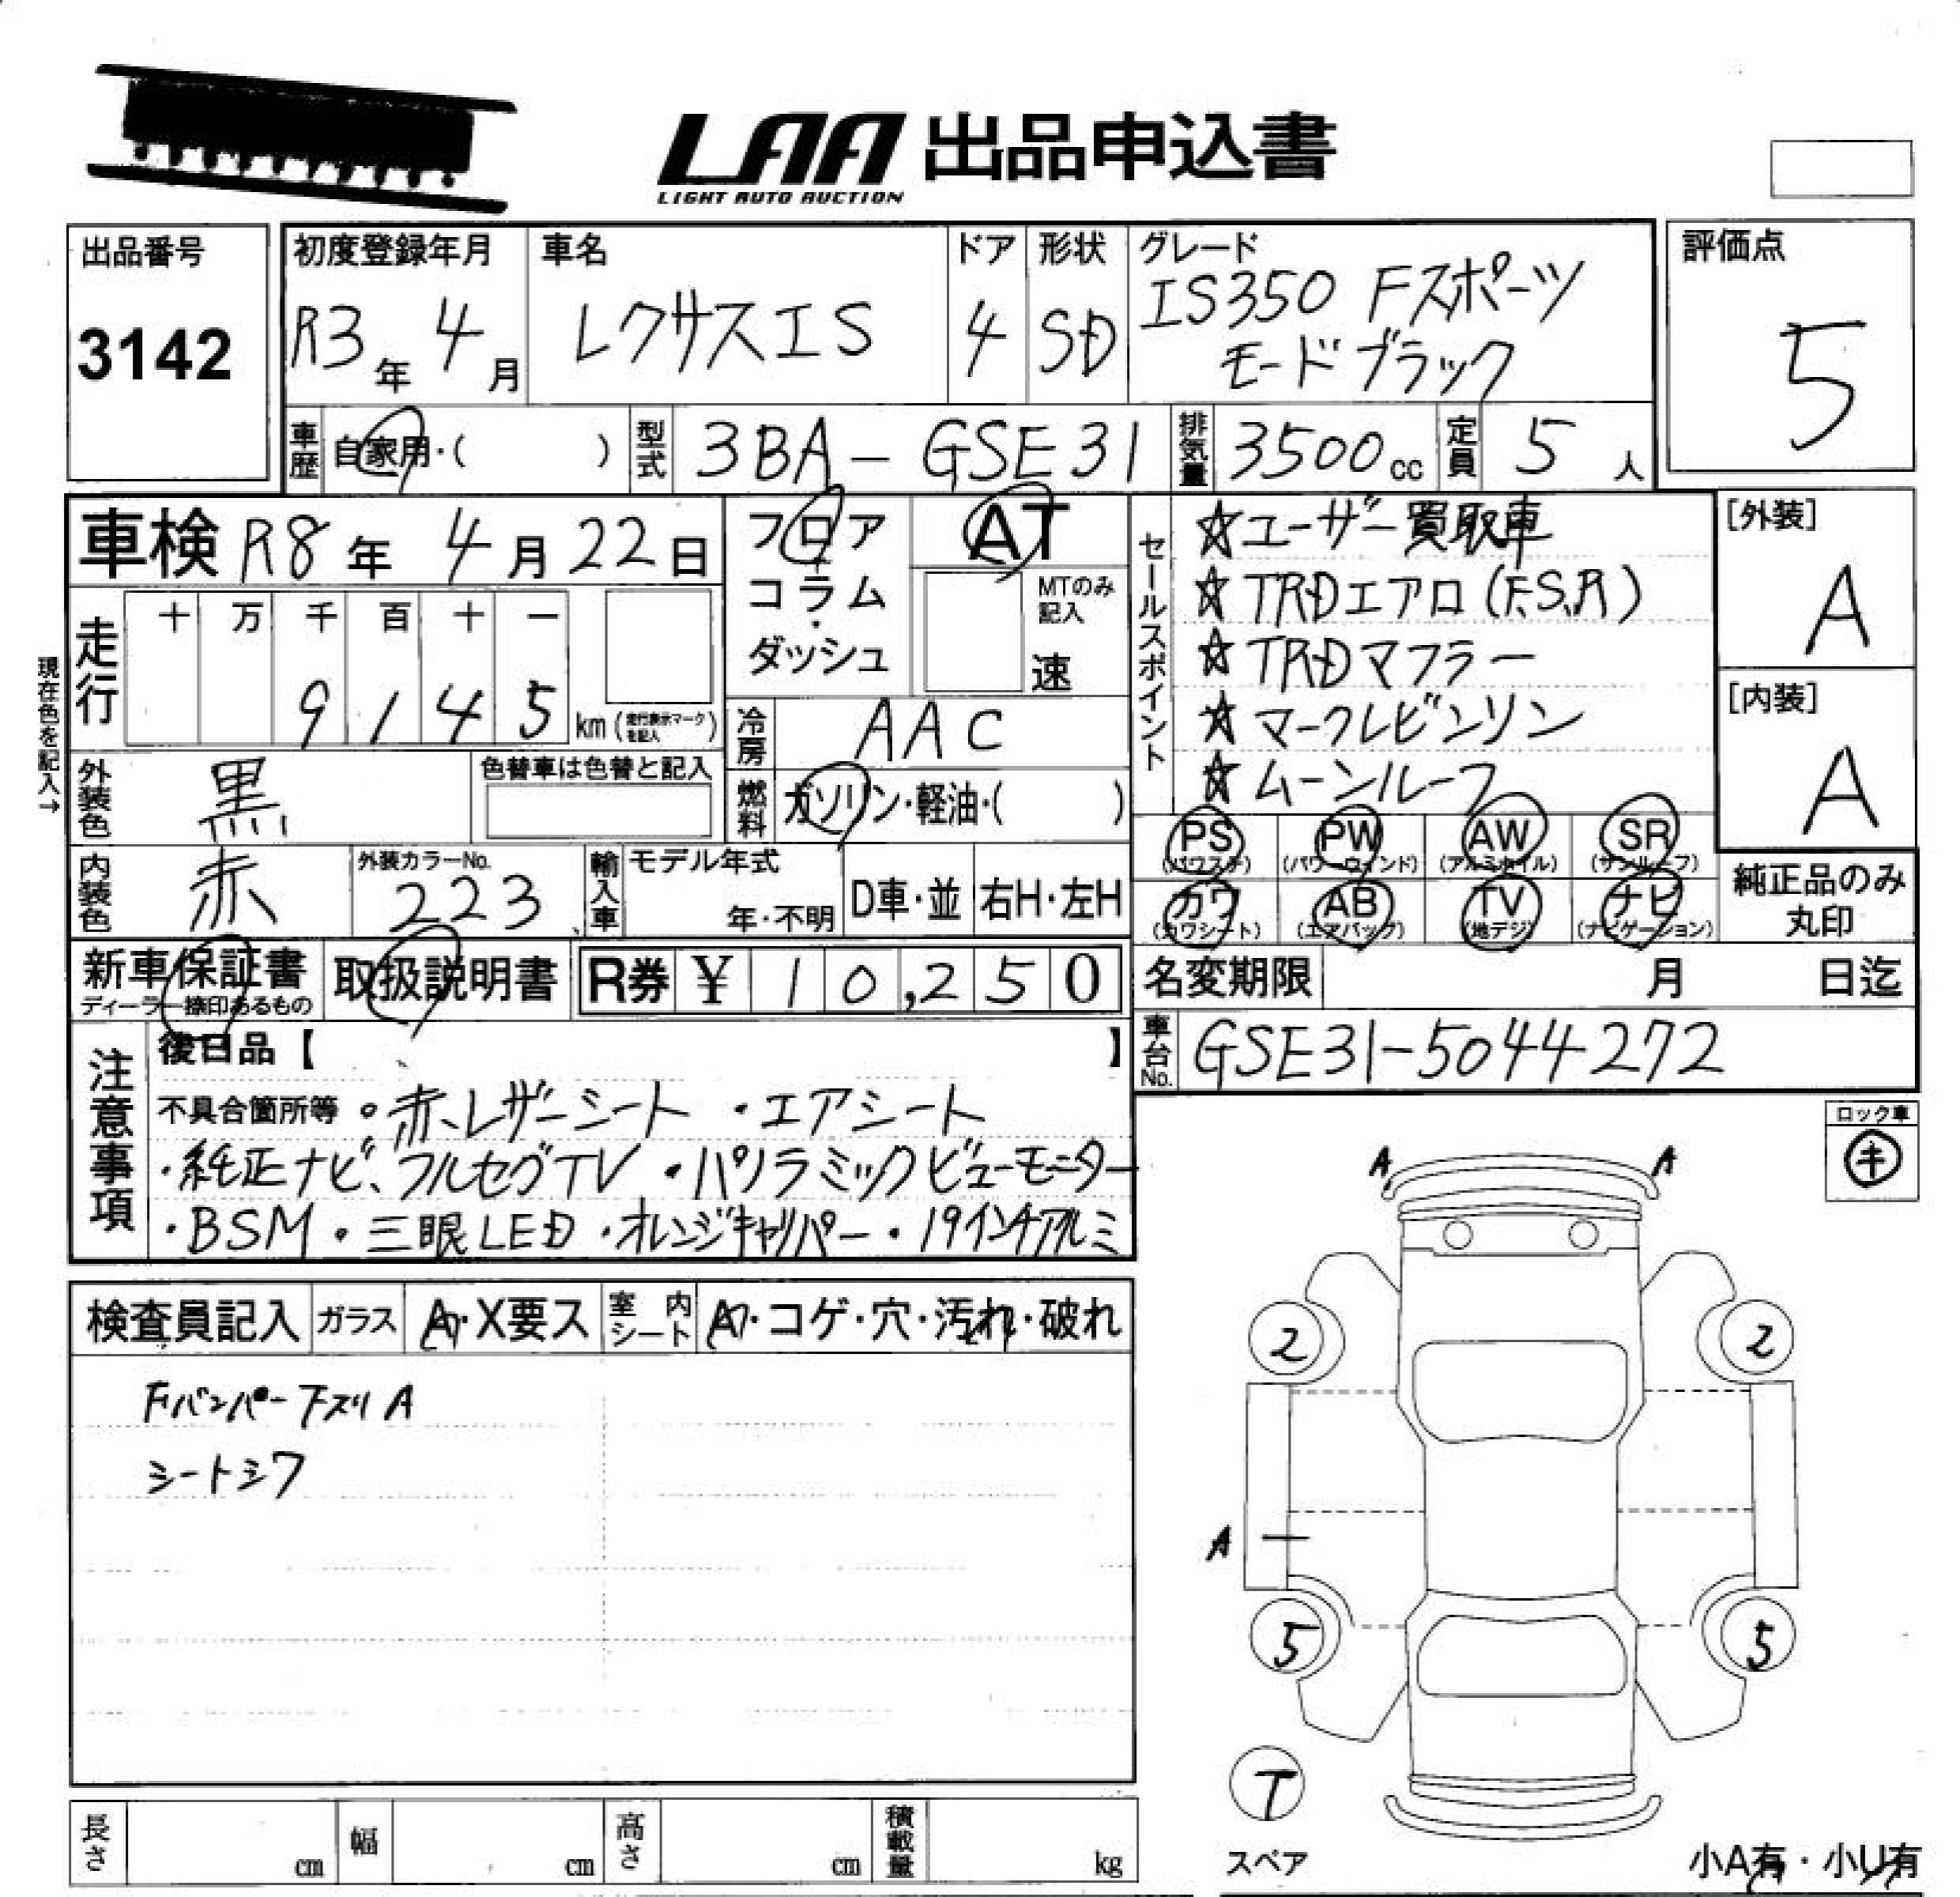 LAA 出品申込書
LIGHT AUTO AUCTION
出品番号
3142
初度登録年月
R3年 4月
車名
レクサスIS
ドア
4
形状
SD
グレード
IS350 Fスポーツ
モードブラック
評価点
5
車歴 自家用・( )
型式 3BA-GSE31
排気量 3500cc
定員 5人
車検 R8年 4月22日
フロア
コラム
・
ダッシュ
AT
MTのみ
記入
速
走行
十 万 千 百 十 一
9 1 4 5 km(走行表示マークを記入)
現在色を記入→
冷房 AAC
外装色 黒
色替車は色替と記入
燃料 ガソリン・軽油・( )
内装色 赤
外装カラーNo.
223
輸入車
モデル年式
年・不明
D車・並
右H・左H
セールスポイント
☆ユーザー買取車
☆TRDエアロ(F.S.R)
☆TRDマフラー
☆マークレビンソン
☆ムーンルーフ
[外装]
A
[内装]
A
PS (パワステ)
PW (パワーウィンド)
AW (アルミホイル)
SR (サンルーフ)
カワ (カワシート)
AB (エアバック)
TV (地デジ)
ナビ (ナビゲーション)
純正品のみ
丸印
新車保証書
ディーラー捺印あるもの
取扱説明書
R券 ¥10,250
名変期限 月 日迄
車台No. GSE31-5044272
注意事項
後日品【 】
不具合箇所等 ・赤レザーシート ・エアシート
・純正ナビ、フルセグTV ・パノラミックビューモニター
・BSM ・三眼LED ・オレンジキャリパー ・19インチアルミ
ロック車
キ
検査員記入
ガラス A・X要ス
室内シート A・コゲ・穴・汚れ・破れ
Fバンパー下スリA
シートシワ
A A
2 2
A
5 5
T
スペア
小A有・小U有
長さ cm
幅 cm
高さ cm
積載量 kg